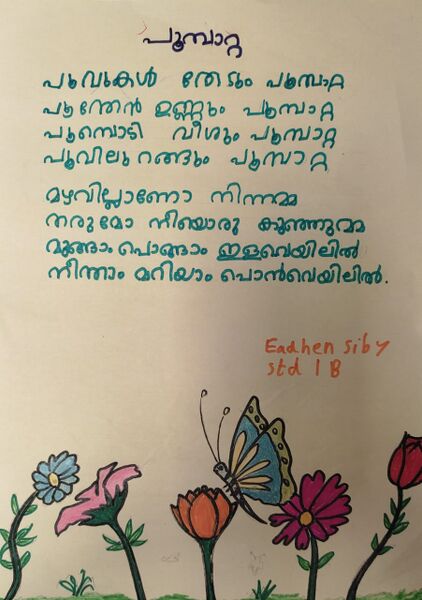 പൂമ്പാറ്റ
പൂവുകൾ തേടും പൂമ്പാറ്റ
പൂന്തേൻ ഉണ്ണും പൂമ്പാറ്റ
പൂമ്പൊടി വീശും പൂമ്പാറ്റ
പൂവിലുറങ്ങും പൂമ്പാറ്റ
മഴവില്ലാണോ നിന്നമ്മ
തരുമോ നീയൊരു കുഞ്ഞുമ്മ
മുങ്ങാം പൊങ്ങാം ഇളവെയിലിൽ
നീന്താം മറിയാം പൊൻവെയിലിൽ.
Eadhen Siby
std 1 B